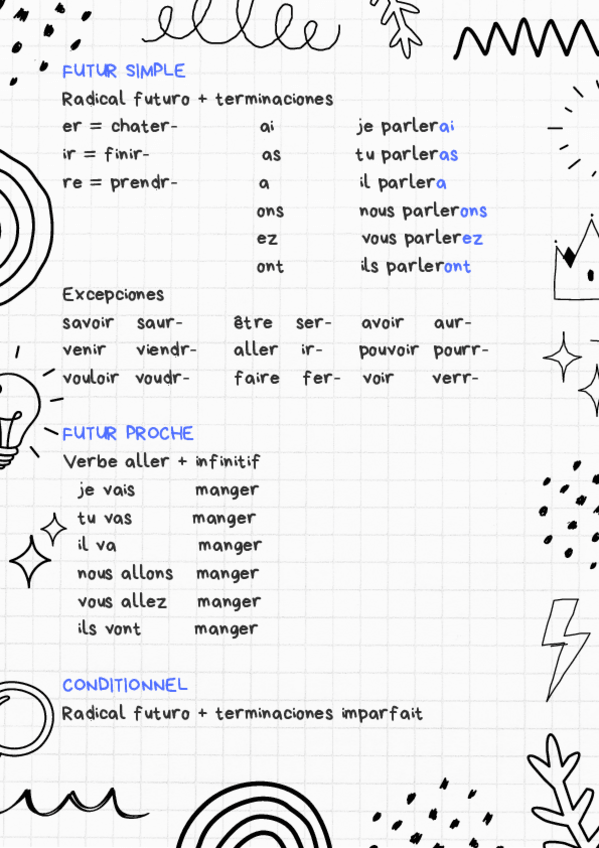 FUTUR SIMPLE
Radical futuro + terminaciones
er = chater- ai je parlerai
ir = finir- as tu parleras
re = prendr- a il parlera
ons nous parlerons
ez vous parlerez
ont ils parleront
Excepciones
savoir saur- être ser- avoir aur-
venir viendr- aller ir- pouvoir pourr-
vouloir voudr- faire fer- voir verr-
FUTUR PROCHE
Verbe aller + infinitif
je vais manger
tu vas manger
il va manger
nous allons manger
vous allez manger
ils vont manger
CONDITIONNEL
Radical futuro + terminaciones imparfait